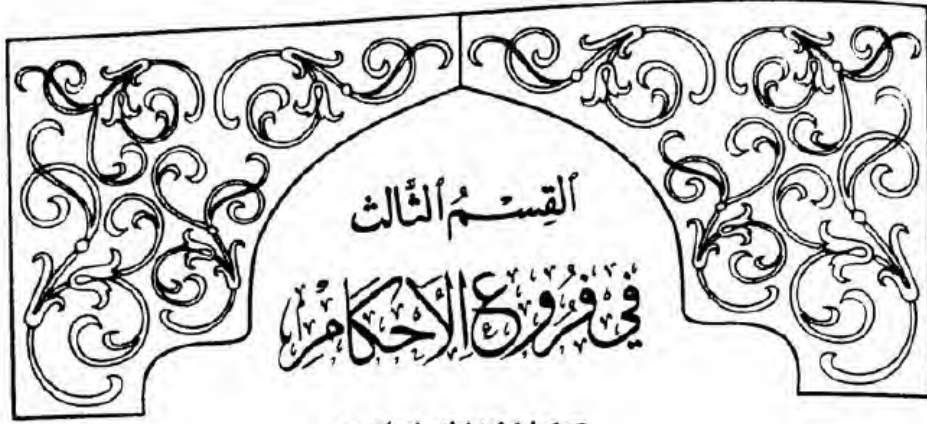 ٱلقِسْمُ ٱلثَّالِث
فِي فُرُوعِ الْأَحْكَامِ